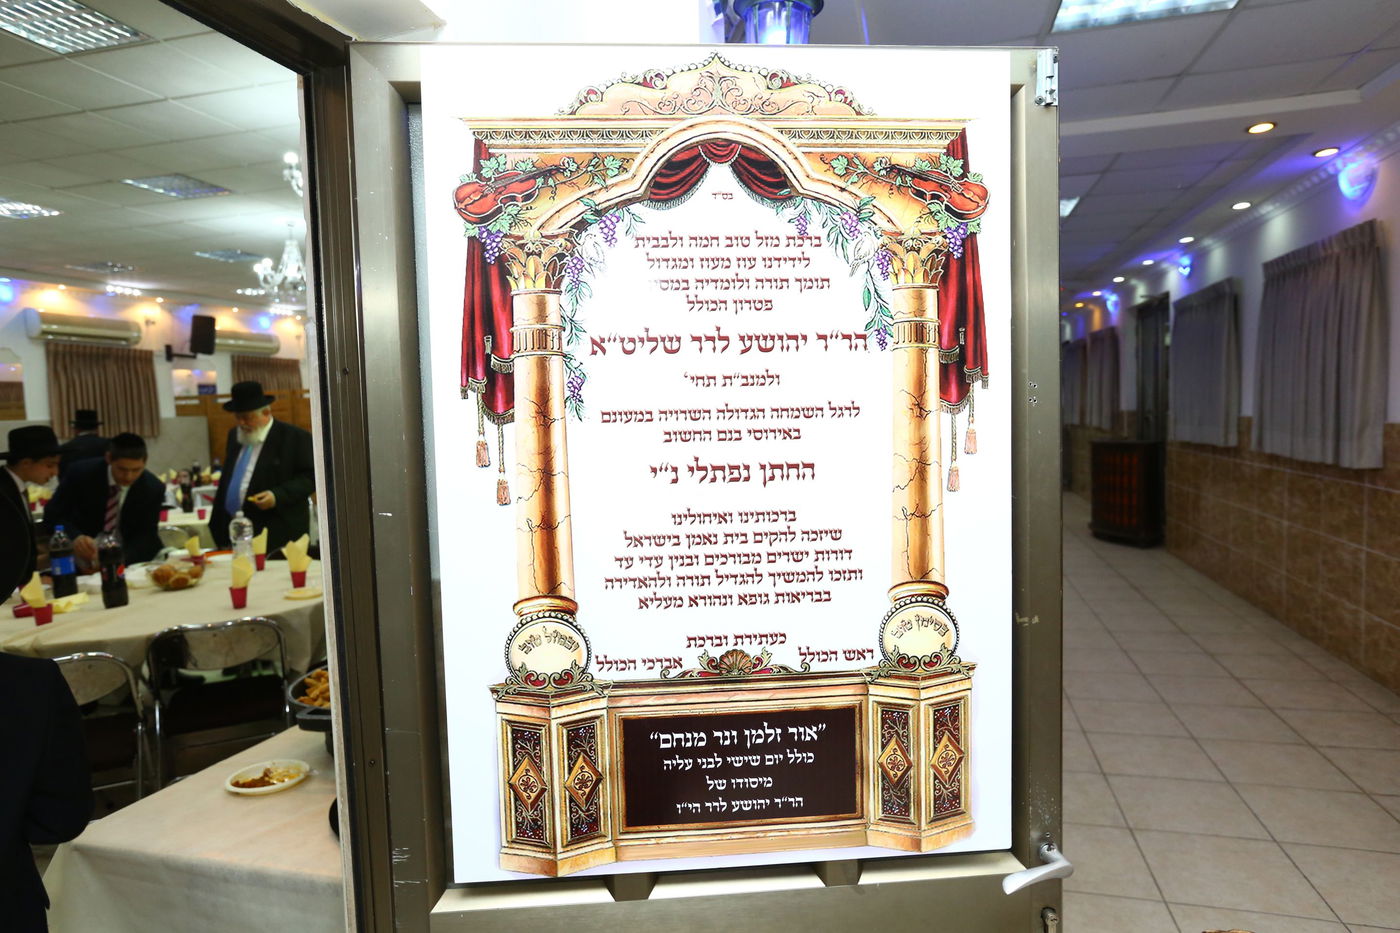 בס״ד
ברכת מזל טוב חמה ולבבית
לידידנו עוז מעוז ומגדול
תומך תורה ולומדיה
פטרון הכולל
הר״ר יהושע לדר שליט״א
ולמנב״ת תחי׳
לרגל השמחה הגדולה השרויה במעונם
באירוסי בנם החשוב
החתן נפתלי נ״י
ברכותינו ואיחולינו
שיזכה להקים בית נאמן בישראל
דורות ישרים מבורכים ובנין עדי עד
ותזכו להמשיך להגדיל תורה ולהאדירה
בבריאות גופא ונהורא מעליא
כעתירת וברכת
ראש הכולל
אברכי הכולל
בסימן טוב
ובמזל טוב
״אור זלמן ונר מנחם״
כולל יום שישי לבני עליה
מיסודו של
הר״ר יהושע לדר הי״ו